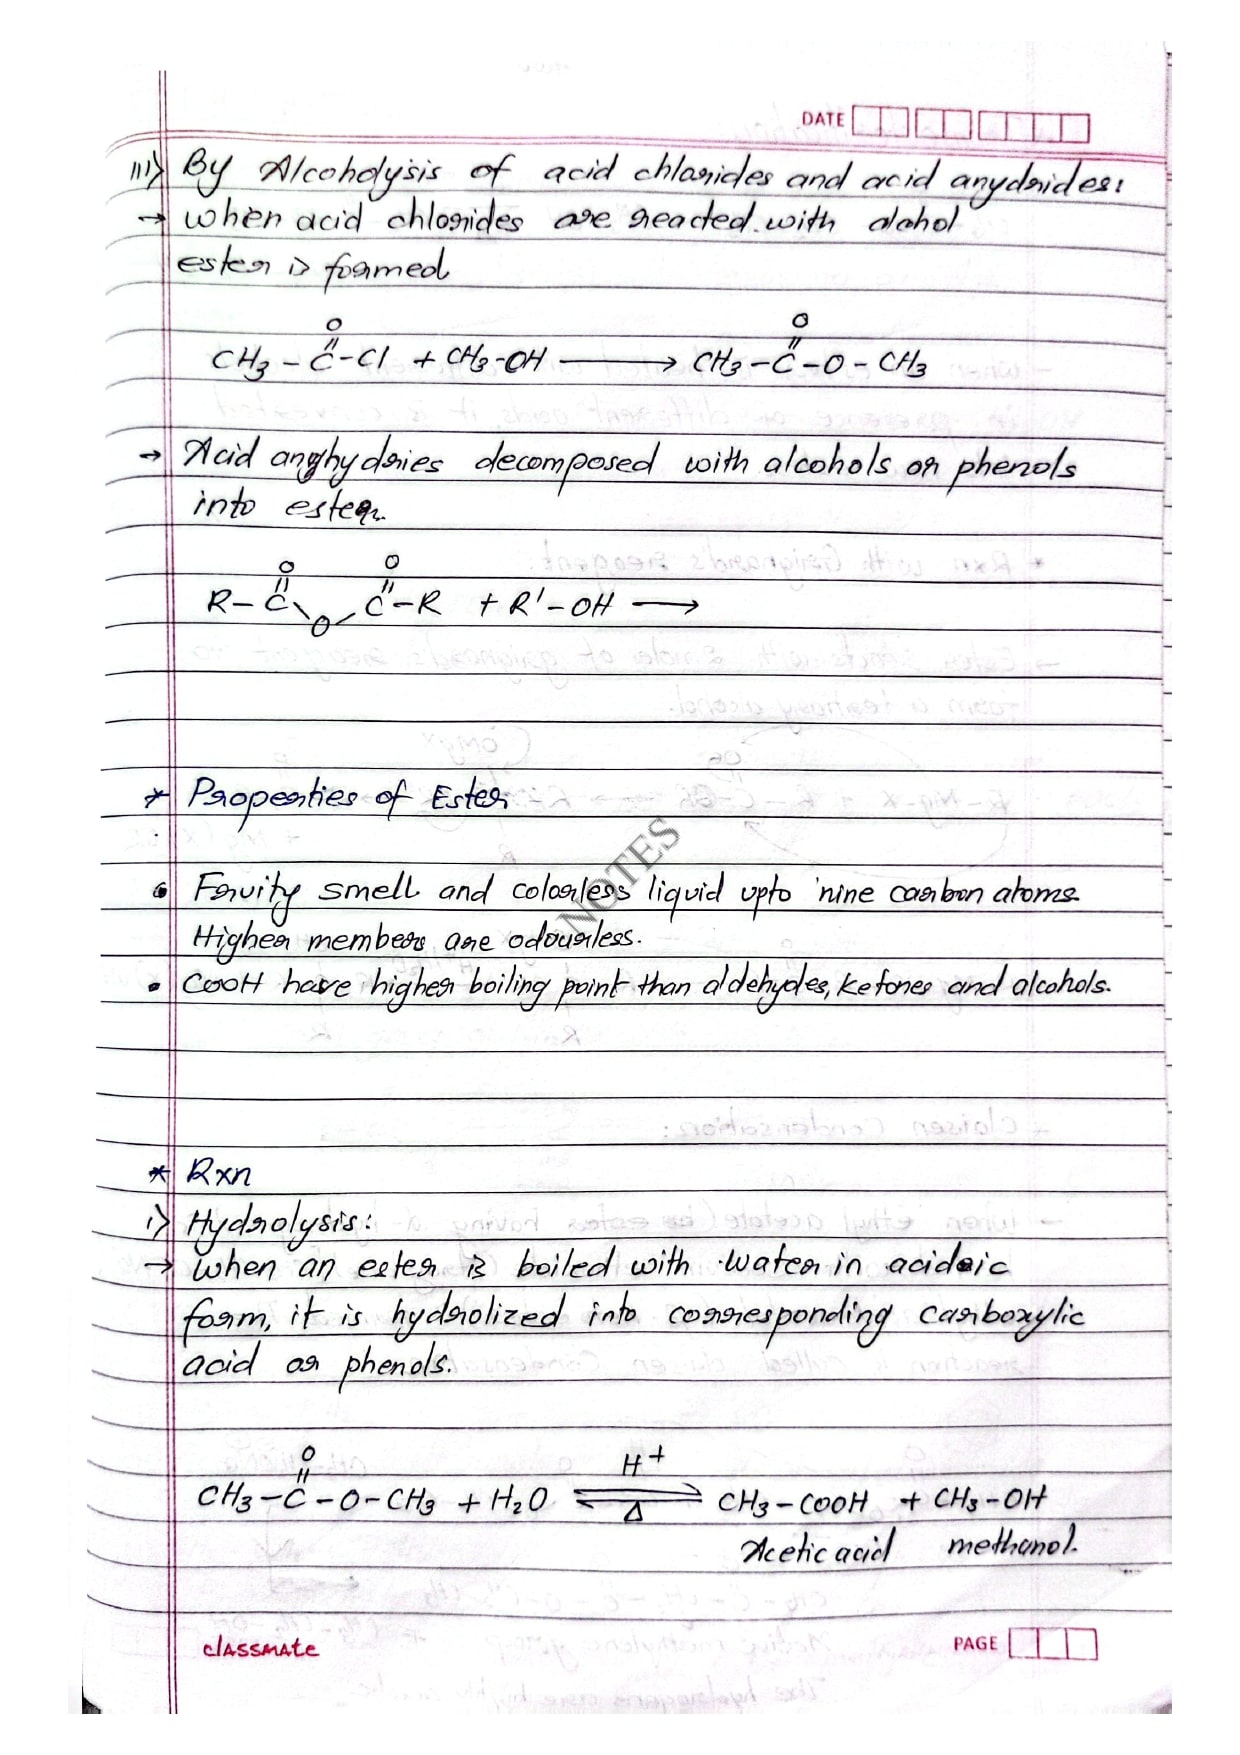 DATE
iii) By Alcoholysis of acid chlorides and acid anydrides:
→ when acid chlorides are reacted with alohol
ester is formed
O
CH3 - C - Cl + CH3-OH → CH3 - C - O - CH3
O
→ Acid anghydries decomposed with alcohols or phenols
into ester.
O O
R - C \ O / C - R + R' - OH →
* Properties of Ester
• Fruity smell and colorless liquid upto nine carbon atoms
Higher members are odourless.
• COOH have higher boiling point than aldehydes, ketones and alcohols.
NOTES
* Rxn
i) Hydrolysis:
→ when an ester is boiled with water in acidic
form, it is hydrolized into corresponding carboxylic
acid or phenols.
O H+
CH3 - C - O - CH3 + H2O ⇌ CH3 - COOH + CH3 - OH
Δ
Acetic acid methanol.
classmate PAGE